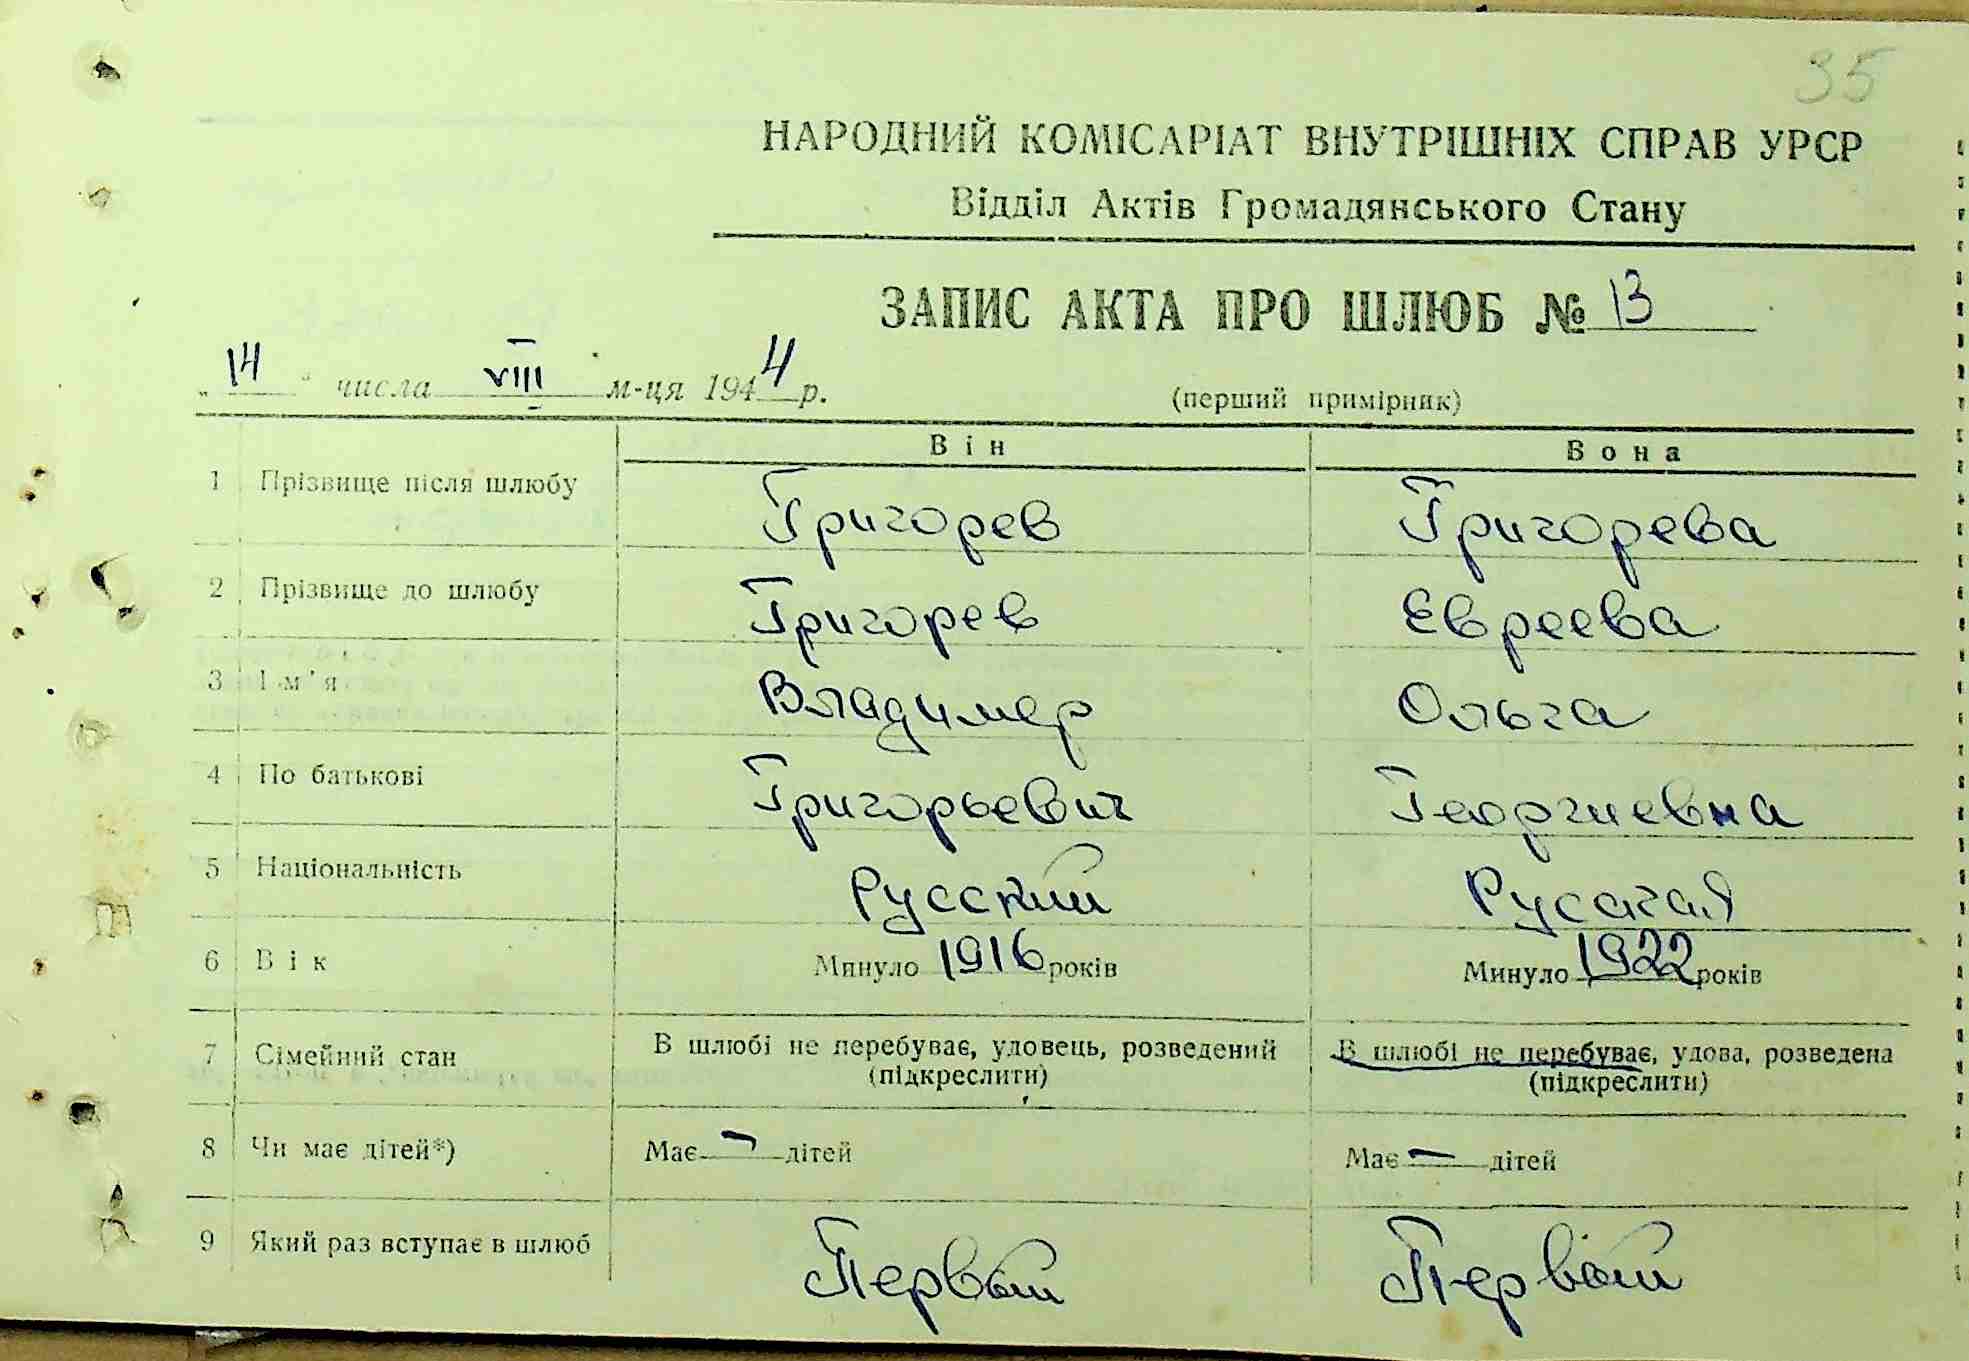 35
НАРОДНИЙ КОМІСАРІАТ ВНУТРІШНІХ СПРАВ УРСР
Відділ Актів Громадянського Стану
ЗАПИС АКТА ПРО ШЛЮБ № 13
„ 14 “ числа VIII м-ця 1944 р.
(перший примірник)
Він Вона
1 Прізвище після шлюбу Григорев Григорева
2 Прізвище до шлюбу Григорев Евреева
3 Ім'я Владимер Ольга
4 По батькові Григорьевич Георгиевна
5 Національність Русский Русская
6 Вік Минуло 1916 років Минуло 1922 років
7 Сімейний стан В шлюбі не перебуває, удовець, розведений В шлюбі не перебуває, удова, розведена
(підкреслити) (підкреслити)
8 Чи має дітей*) Має — дітей Має — дітей
9 Який раз вступає в шлюб Первый Первый